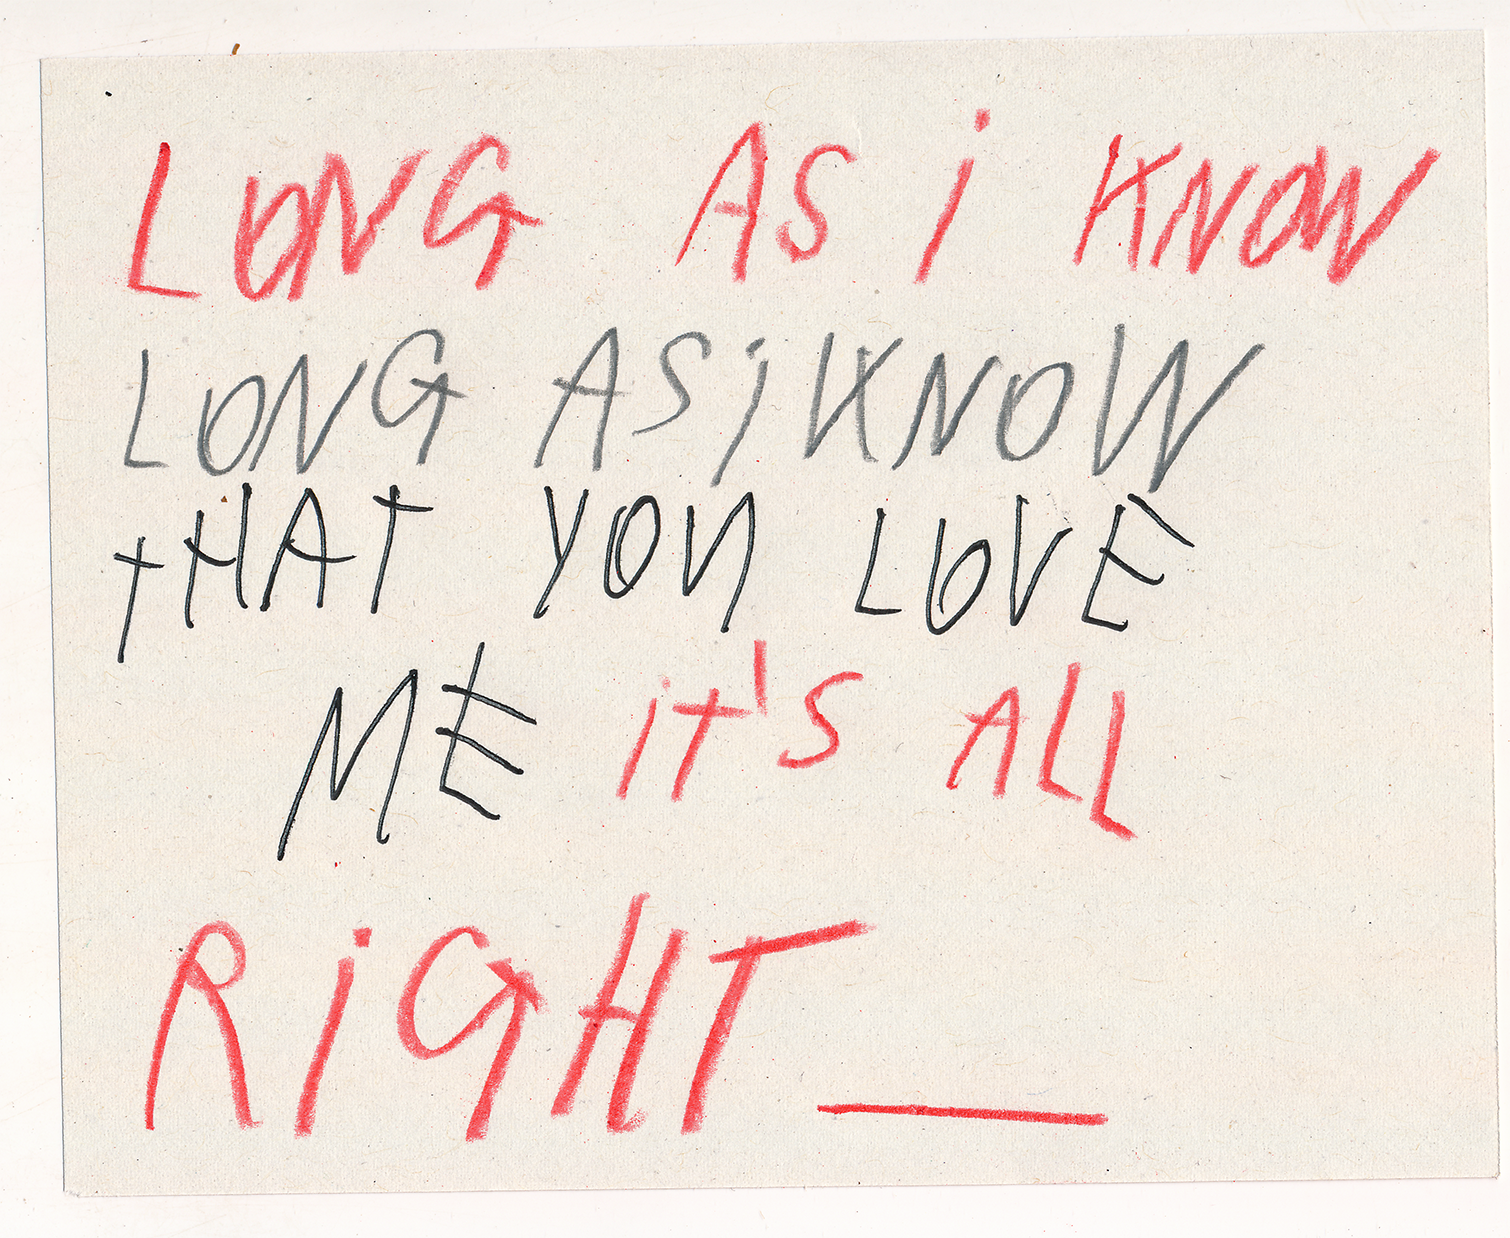 LONG AS i KNOW
LONG AS i KNOW
tHAT YOU LOVE
ME iT'S ALL
RiGHT __